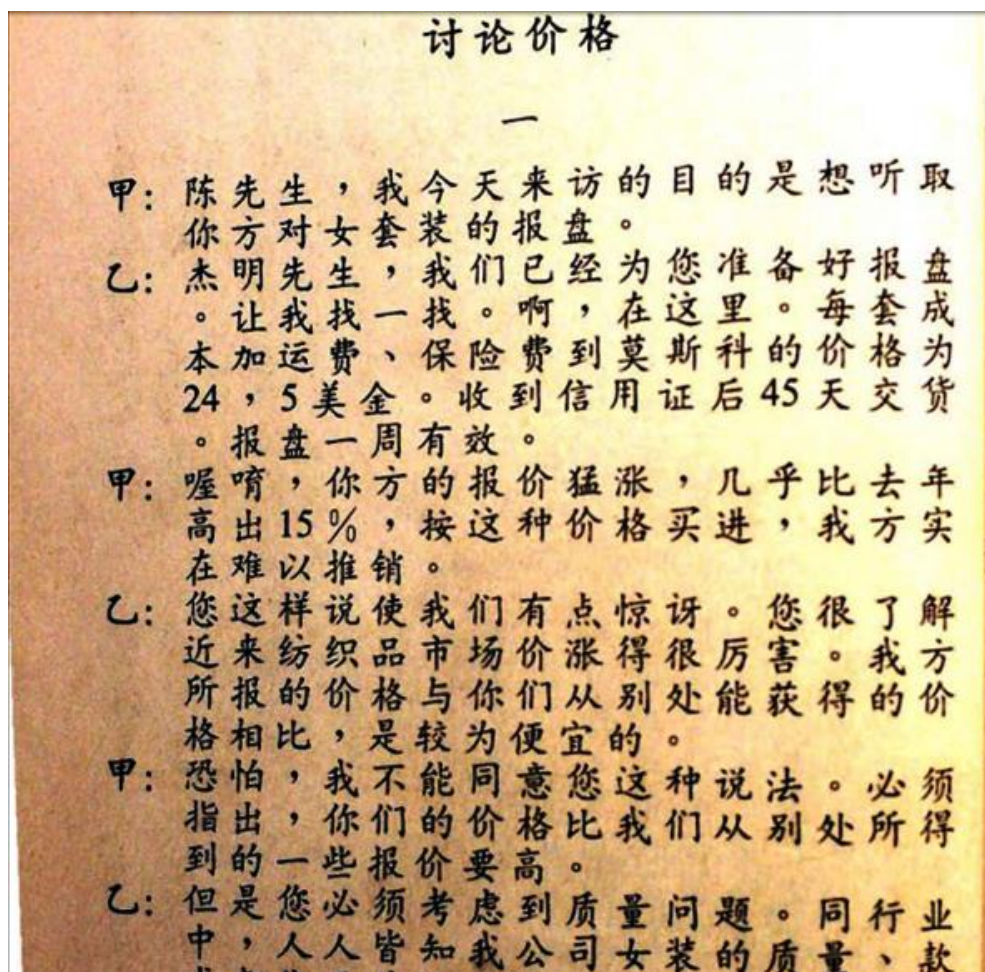 讨论价格
一
甲: 陈先生，我今天来访的目的是想听取
你方对女套装的报盘。
乙: 杰明先生，我们已经为您准备好报盘
。让我找一找。啊，在这里。每套成
本加运费、保险费到莫斯科的价格为
24，5美金。收到信用证后45天交货
。报盘一周有效。
甲: 喔唷，你方的报价猛涨，几乎比去年
高出15%，按这种价格买进，我方实
在难以推销。
乙: 您这样说使我们有点惊讶。您很了解
近来纺织品市场价涨得很厉害。我方
所报的价格与你们从别处能获得的价
格相比，是较为便宜的。
甲: 恐怕，我不能同意您这种说法。必须
指出，你们的价格比我们从别处所得
到的一些报价要高。
乙: 但是您必须考虑到质量问题。同行业
中，人人皆知我公司女装的质量、款